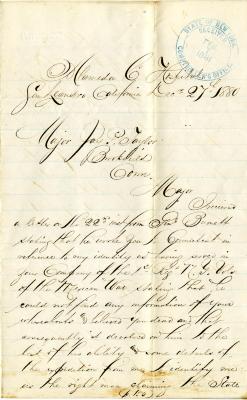 STATE OF NEW
RECEIV
COMPTROLLER'S OFFICE
Alameda C
San Leandro California Decr 27th 1880
Major Jas. Taylor
Conn.
Major
a letter of the 22nd inst from Burnett
stating that he wrote you to Connecticut in
reference to my identity as having served in
your Company of the 1st Regt N.Y. Vols
of the Mexican War stating that he
could not find any information of your
whereabouts & believed you dead and that
consequently it devolved on him to the
best of his ability & some details of
the expedition from me to identify me
as the right man claiming the State